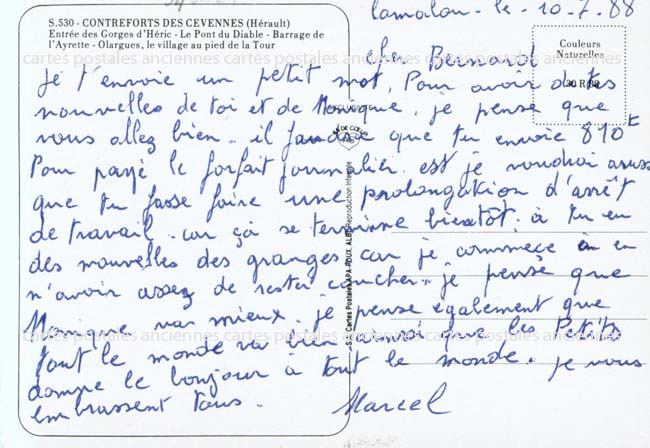 S.530 - CONTREFORTS DES CEVENNES (Hérault)
Entrée des Gorges d'Héric - Le Pont du Diable - Barrage de
l'Ayrette - Olargues, le village au pied de la Tour
Lamalou - le - 10.7.88
Couleurs
Naturelles
cher Bernard
je t'envoie un petit mot. Pour avoir de tes
nouvelles de toi et de Monique. je pense que
vous allez bien. il faudrai que tu envoie 810
Pour payé le forfait journalier. est je voudrai aussi
que tu fasse faire une prolongation d'arrêt
de travail. car ça se termine bientôt. à tu eu
des nouvelles des granges car je commece à en
n'avoir assez de rester coucher. je pense que
Monique vas mieux. je pense egalement que
tout le monde va bien ainsi que les Petits
donne le bonjour à tout le monde. je vous
embrassent tous.
Marcel
cartes postales anciennes cartes postales anciennes cartes postales anciennes